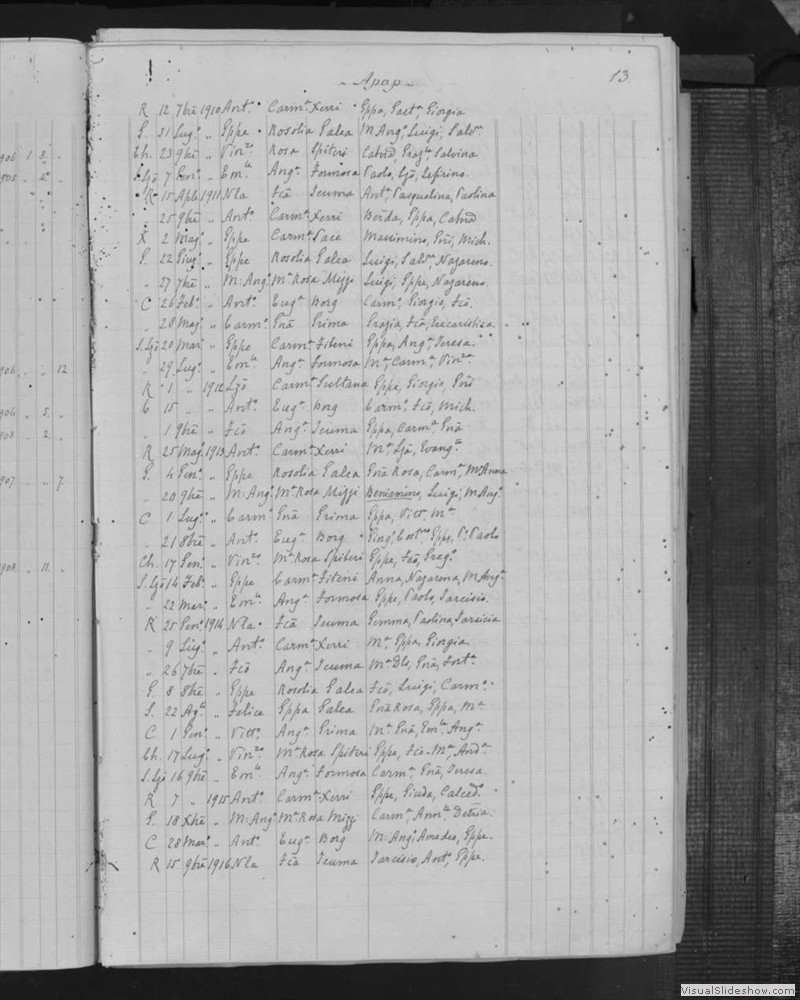 ~ Apap ~ 13
R 12 7bre 1910 Ant.o Carm.a Xerri Eppa, Gaet.a, Giorgia
G. 31 Lug.o „ Eppe Rosolia Galea M. Ang.o, Luigi, Salv.e
Ch. 23 9bre „ Vin.zo Rosa Spiteri Salvina
S. Ljō 7 Gen.o „ Em.le Ang.a Formosa Paolo, Ljō, Zefirino.
R 15 Aple 1911 Nla Fcā Icuma Ant.a, Pasqualina, Paolina
„ 25 9bre „ Ant.o Carm.a Xerri Eppa,
X 2 Mag.o „ Eppe Carm.a Pace Massimino, Gñi, Mich.
G. 22 Giug.o „ Eppe Rosolia Galea Luigi, Salv.e, Nazareno.
„ 27 7bre „ M. Ang.o M.a Rosa Mizzi Luigi, Eppe, Nazareno.
C 26 Feb.o „ Ant.o Eug.a Borg Carm.o, Giorgio, Fcō.
„ 28 Mag.o „ Carm.o Gñā Prima Grazia, Fcā, Eucaristica
S. Ljō 20 Mar.o „ Eppe Carm.a Fiteni Eppa, Ang.a, Teresa.
„ 29 Lug.o „ Em.le Ang.a Formosa M.a, Carm.a, Vin.za
R 1 „ 1912 Ljō Carm.a Sultana Eppe, Giorgio, Gñi
C 15 „ „ Ant.o Eug.a Borg Carm.o, Fcō, Mich.
„ 1 9bre „ Fcō Ang.a Icuma Eppa, Carm.a Gñā
R 25 Mag.o 1913 Ant.o Carm.a Xerri M.a, Ljā, Evang.a
G. 4 Gen.o „ Eppe Rosolia Galea Gñā Rosa, Carm.a, M. Anna
„ 20 9bre „ M. Ang.o M.a Rosa Mizzi Beniamino, Luigi, M. Ang.o
C 1 Lug.o „ Carm.o Gñā Prima Eppa, Vitt.a, M.a
„ 21 8bre „ Ant.o Eug.a Borg Giorg.o, Cost.no, Eppe, P. Paolo
Ch. 17 Gen.o „ Vin.zo M.a Rosa Spiteri Eppe, Fcō, Greg.o
S. Ljō 14 Feb.o „ Eppe Carm.a Fiteni Anna, Nazarena, M. Ang.a
„ 22 Mar.o „ Em.le Ang.a Formosa Eppe, Paolo, Tarcisio.
R 25 Gen.o 1914 Nla Fcā Icuma Gemma, Paolina, Tarcisia
„ 9 Lug.o „ Ant.o Carm.a Xerri M.a, Eppa, Giorgia.
„ 26 7bre „ Fcō Ang.a Icuma M.a Dls, Gñā, Fort.a
G. 8 8bre „ Eppe Rosolia Galea Fcō, Luigi, Carm.o
S. 22 Ag.to „ Felice Eppa Galea Gñā Rosa, Eppa, M.a
C 1 Gen.o „ Vitt.o Ang.a Prima M.a Gñā, Em.la, Ang.a
Ch. 17 Lug.o „ Vin.zo M.a Rosa Spiteri Eppe, Fcō M.a, And.a
S. Ljō 16 9bre „ Em.le Ang.a Formosa Carm.a, Gñā, Teresa.
R 7 „ 1915 Ant.o Carm.a Xerri Eppe, Giuda, Calced.o
G. 18 Xbre „ M. Ang.o M.a Rosa Mizzi Carm.a, Ann.ta,
C 28 Mar.o „ Ant.o Eug.a Borg M. Ang.o, Amedeo, Eppe.
R 15 9bre 1916 Nla Fcā Icuma Tarcisio, Ant.o, Eppe.
906 1 5
905 2
906 „ „ 12
906 „ 5
908 „ 2
907 „ „ 7
908 „ 11
VisualSlideshow.com